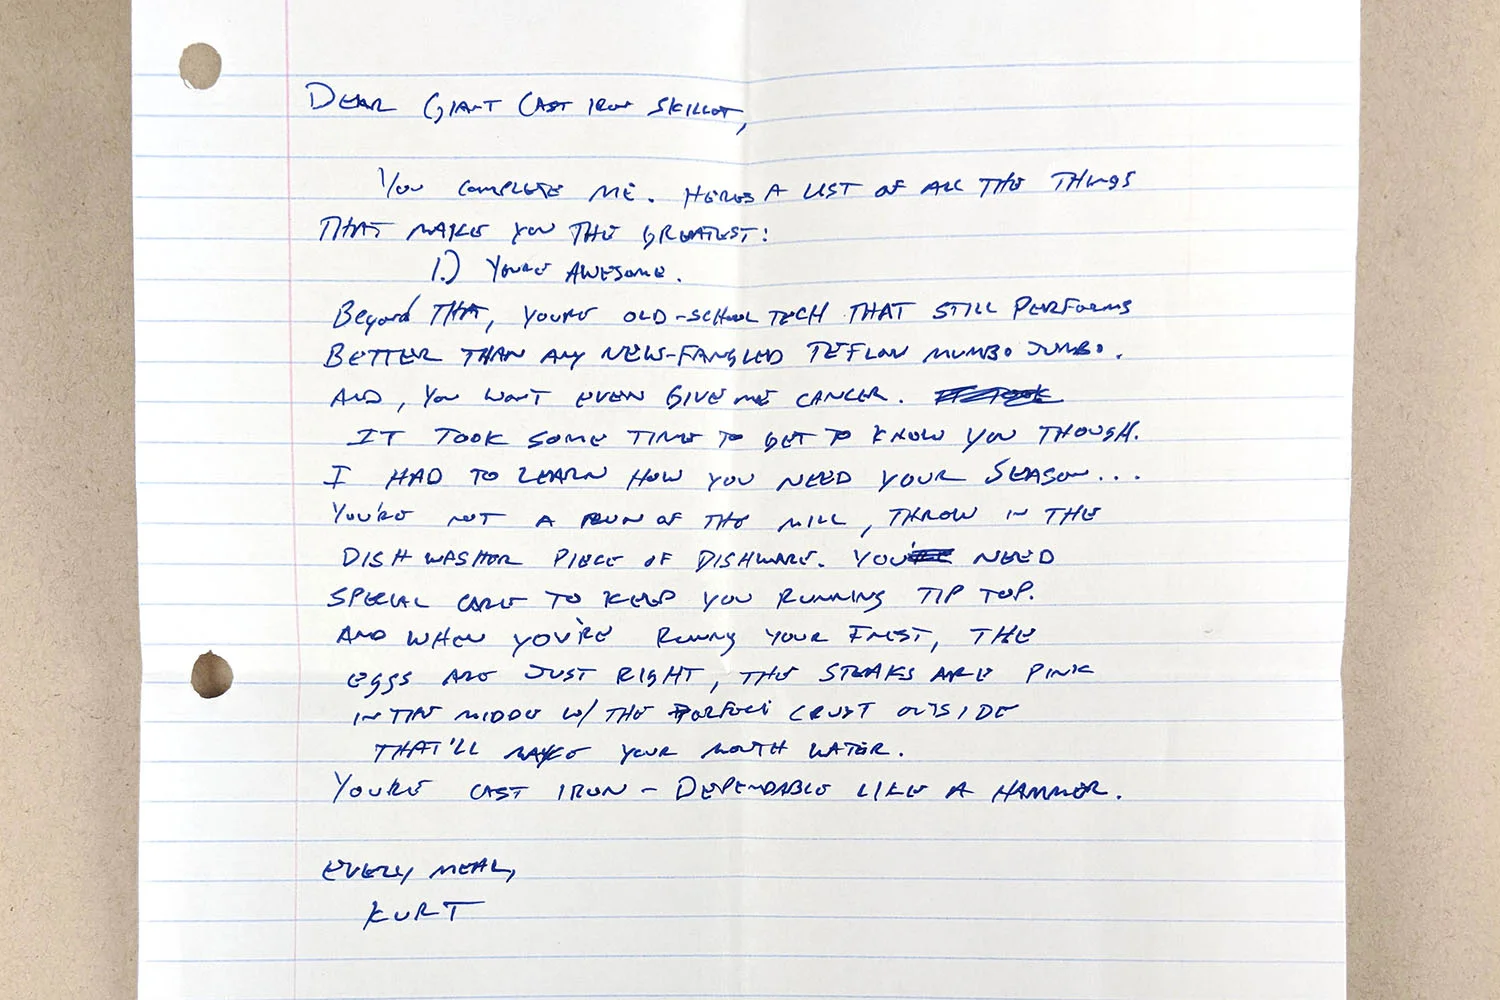 DEAR GIANT CAST IRON SKILLET,
YOU COMPLETE ME. HERES A LIST OF ALL THE THINGS
THAT MAKE YOU THE GREATEST:
1.) YOURE AWESOME.
Beyond THAT, YOURE OLD-SCHOOL TECH THAT STILL PERFORMS
BETTER THAN ANY NEW-FANGLED TEFLON MUMBO JUMBO.
AND, YOU WONT EVEN GIVE ME CANCER.
IT TOOK SOME TIME TO GET TO KNOW YOU THOUGH.
I HAD TO LEARN HOW YOU NEED YOUR SEASON...
YOU'RE NOT A RUN OF THE MILL, THROW IN THE
DISHWASHER PIECE OF DISHWARE. YOU NEED
SPECIAL CARE TO KEEP YOU RUNNING TIP TOP.
AND WHEN YOU'RE RUNNING YOUR FINEST, THE
EGGS ARE JUST RIGHT, THE STEAKS ARE PINK
IN THE MIDDLE W/ THE PERFECT CRUST OUTSIDE
THAT'LL MAKE YOUR MOUTH WATER.
YOU'RE CAST IRON - DEPENDABLE LIKE A HAMMER.
EVERY MEAL,
KURT